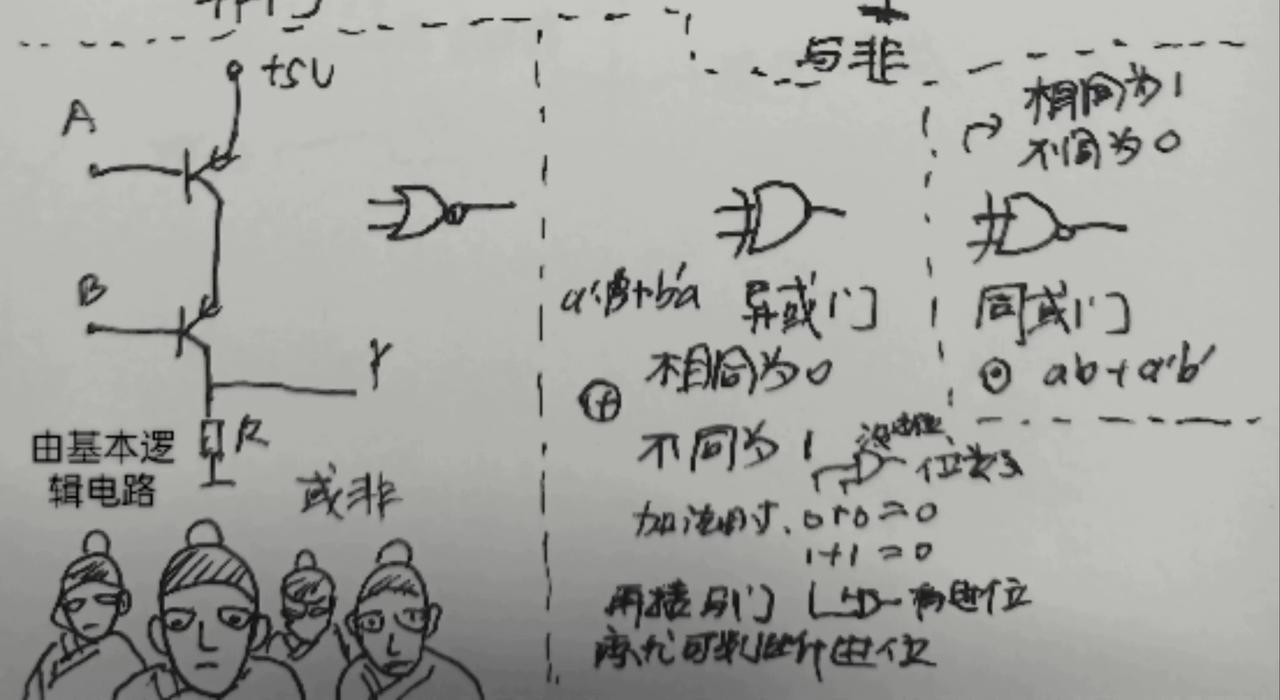 与非
+5V
A
B
Y
R
由基本逻
辑电路
或非
a'b+b'a 异或门
相同为0
⊕
不同为1
加法时、0+0=0
1+1=0
再接与门 有进位
相同为1
不同为0
同或门
⊙ ab+a'b'